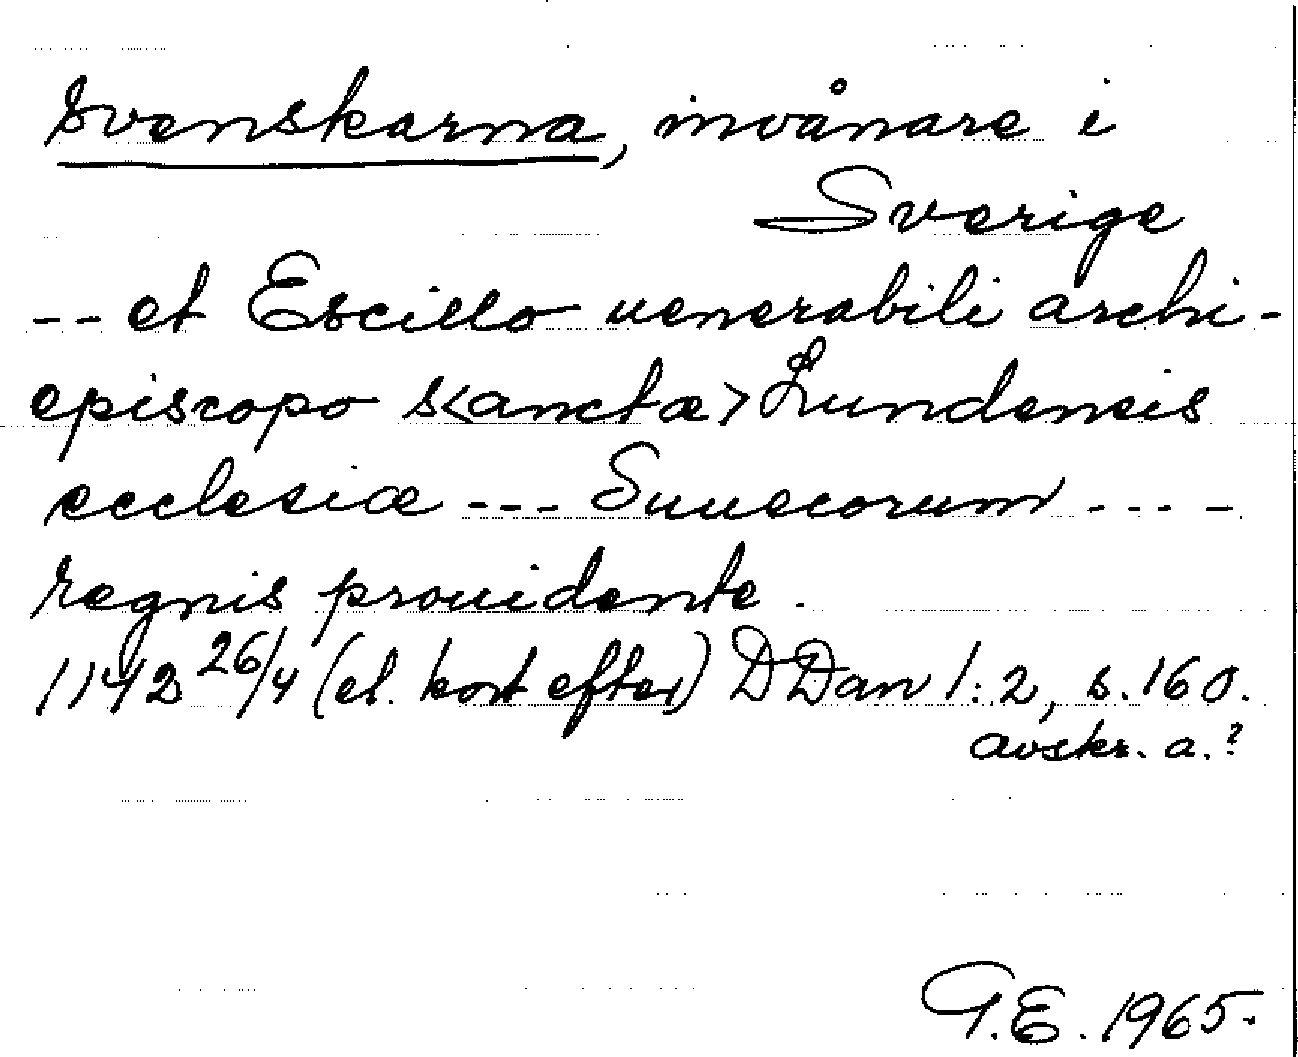 Svenskarna, invånare i
Sverige
-- et Escillo uenerabili archi-
episcopo s<anctæ> Lundensis
ecclesiæ --- Suuecorum ----
regnis prouidente.
1142 26/4 (el. kort efter) DDan 1:2, s. 160.
avskr. a.?
G.E. 1965.